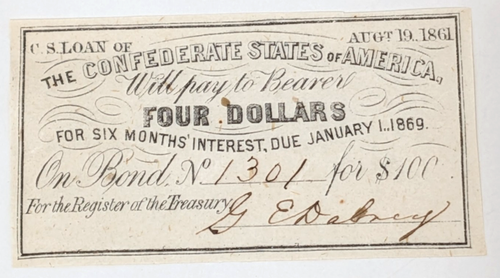 C.S. LOAN OF AUGT 19, 1861
THE CONFEDERATE STATES OF AMERICA,
Will pay to Bearer
FOUR DOLLARS
FOR SIX MONTHS' INTEREST, DUE JANUARY 1., 1869.
On Bond, No 1301 for $100.
For the Register of the Treasury G E Dabney